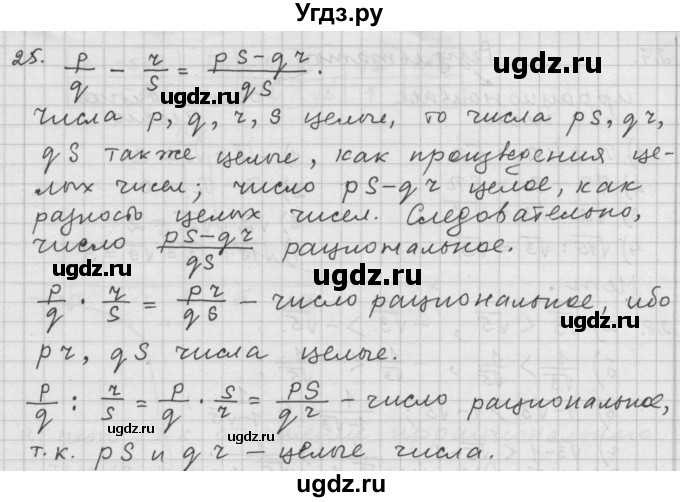 Угдз.ру
25. p/q - r/s = (ps-qr)/qs.
числа p, q, r, s целые, то числа ps, qr,
qs также целые, как произведения це-
лых чисел; число ps-qr целое, как
разность целых чисел. Следовательно,
число (ps-qr)/qs рациональное.
p/q · r/s = pr/qs - число рациональное, ибо
pr, qs числа целые.
p/q : r/s = p/q · s/r = ps/qr - число рациональное,
т.к. ps и qr - целые числа.
ugdz.ru
ugdz.ru
ugdz.ru
ugdz.ru
ugdz.ru
ugdz.ru
ugdz.ru
ugdz.ru
ugdz.ru
ugdz.ru
ugdz.ru